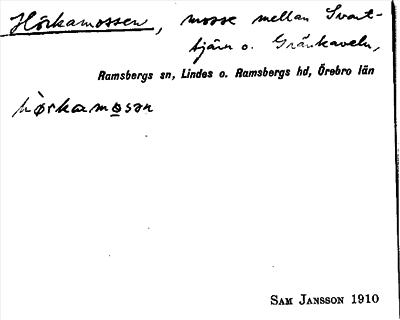 Hörkamossen, mosse mellan Svart-
tjärn o. Gränkaveln,
Ramsbergs sn, Lindes o. Ramsbergs hd, Örebro län
hörkamosən
SAM JANSSON 1910